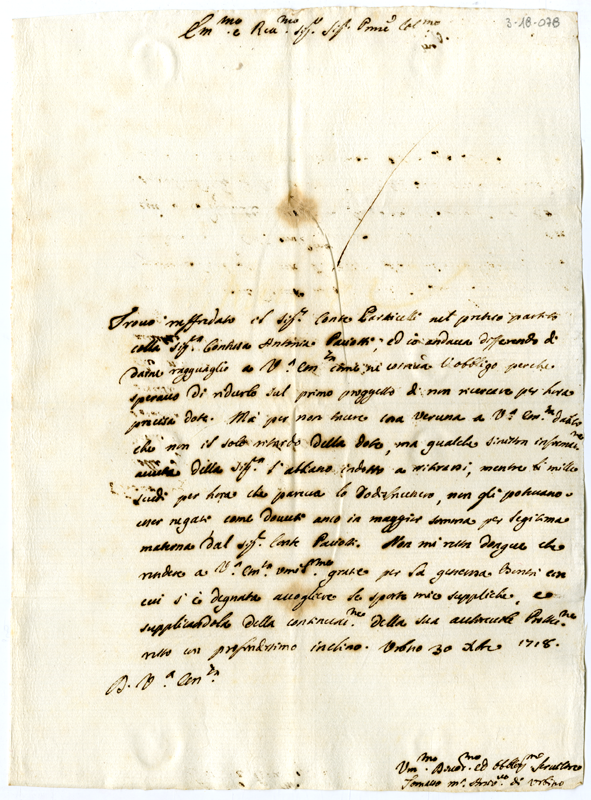 3-18-078
Em.mo e Reu.mo Sig.r Sig.r Pnie Col.mo
Trouo raffredato il Sig.r Conte nel partito
colla Sig.ra Contessa Antonia Pauotti, ed io andaua diferendo di
darne ragguaglio a V.a Em.za l'obbligo perche
sperauo di ridurlo sul primo proggetto di non ricercare per hora
precisa dote. Ma per non tacere cosa veruna a V.a Em.za dubito
che non il solo ritardo della dote, ma qualche sinistra
della Sig.ra l'abbiano indotto a ritirarsi, mentre li mille
scudi per hora che pareua lo sodisfacessero, non gli poteuano
esser negati come douuti anco in maggior somma per legitima
materna dal Sig.r Conte Pauotti. Non mi resta donque che
rendere a V.a Em.za grazie per la generosa con
cui si è degnata accogliere le mie suppliche, e
supplicandola della continuaz.ne della sua Protez.ne
resto con profondissimo inclino. Vrbino 30 Xbre 1718.
D. V.a Em.za
Vm.mo Deuot.mo ed Obblig.mo Seruitore
Tomasso M.a Arciu.o di Vrbino